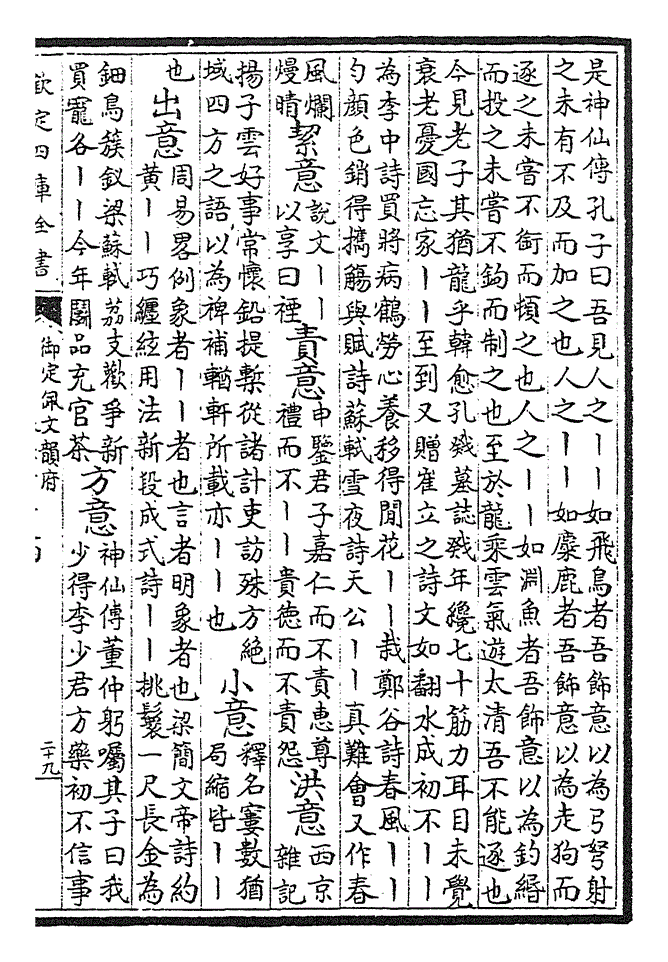 是神仙傳孔子曰吾見人之丨丨如飛鳥者吾飾意以為弓弩射
之未有不及而加之也人之丨丨如麋鹿者吾飾意以為走狗而
逐之未嘗不銜而頓之也人之丨丨如淵魚者吾飾意以為釣緡
而投之未嘗不鉤而制之也至於龍乘雲氣遊太清吾不能逐也
今見老子其猶龍乎韓愈孔戣墓誌戣年纔七十筋力耳目未覺
衰老憂國忘家丨丨至到又贈崔立之詩文如翻水成初不丨丨
為李中詩買將病鶴勞心養移得閒花丨丨栽鄭谷詩春風丨丨
勺顏色銷得攜觴與賦詩蘇軾雪夜詩天公丨丨真難會又作春
風爛
熳晴
絜意
說文丨丨
以享曰禋
責意
申鑒君子嘉仁而不責惠尊
禮而不丨丨貴德而不責怨
洪意
西京
雜記
揚子雲好事常懷鉛提槧從諸計吏訪殊方絶
域四方之語以為裨補輶軒所載亦丨丨也
小意
釋名寠數猶
局縮皆丨丨
也
出意
周易畧例象者丨丨者也言者明象者也梁簡文帝詩約
黄丨丨巧纒絃用法新段成式詩丨丨挑鬟一尺長金為
鈿鳥簇釵梁蘇軾荔支歎爭新
買寵各丨丨今年鬬品充官茶
方意
神仙傳董仲躬囑其子曰我
少得李少君方藥初不信事
欽定四庫全書
御定佩文韻府
二十九